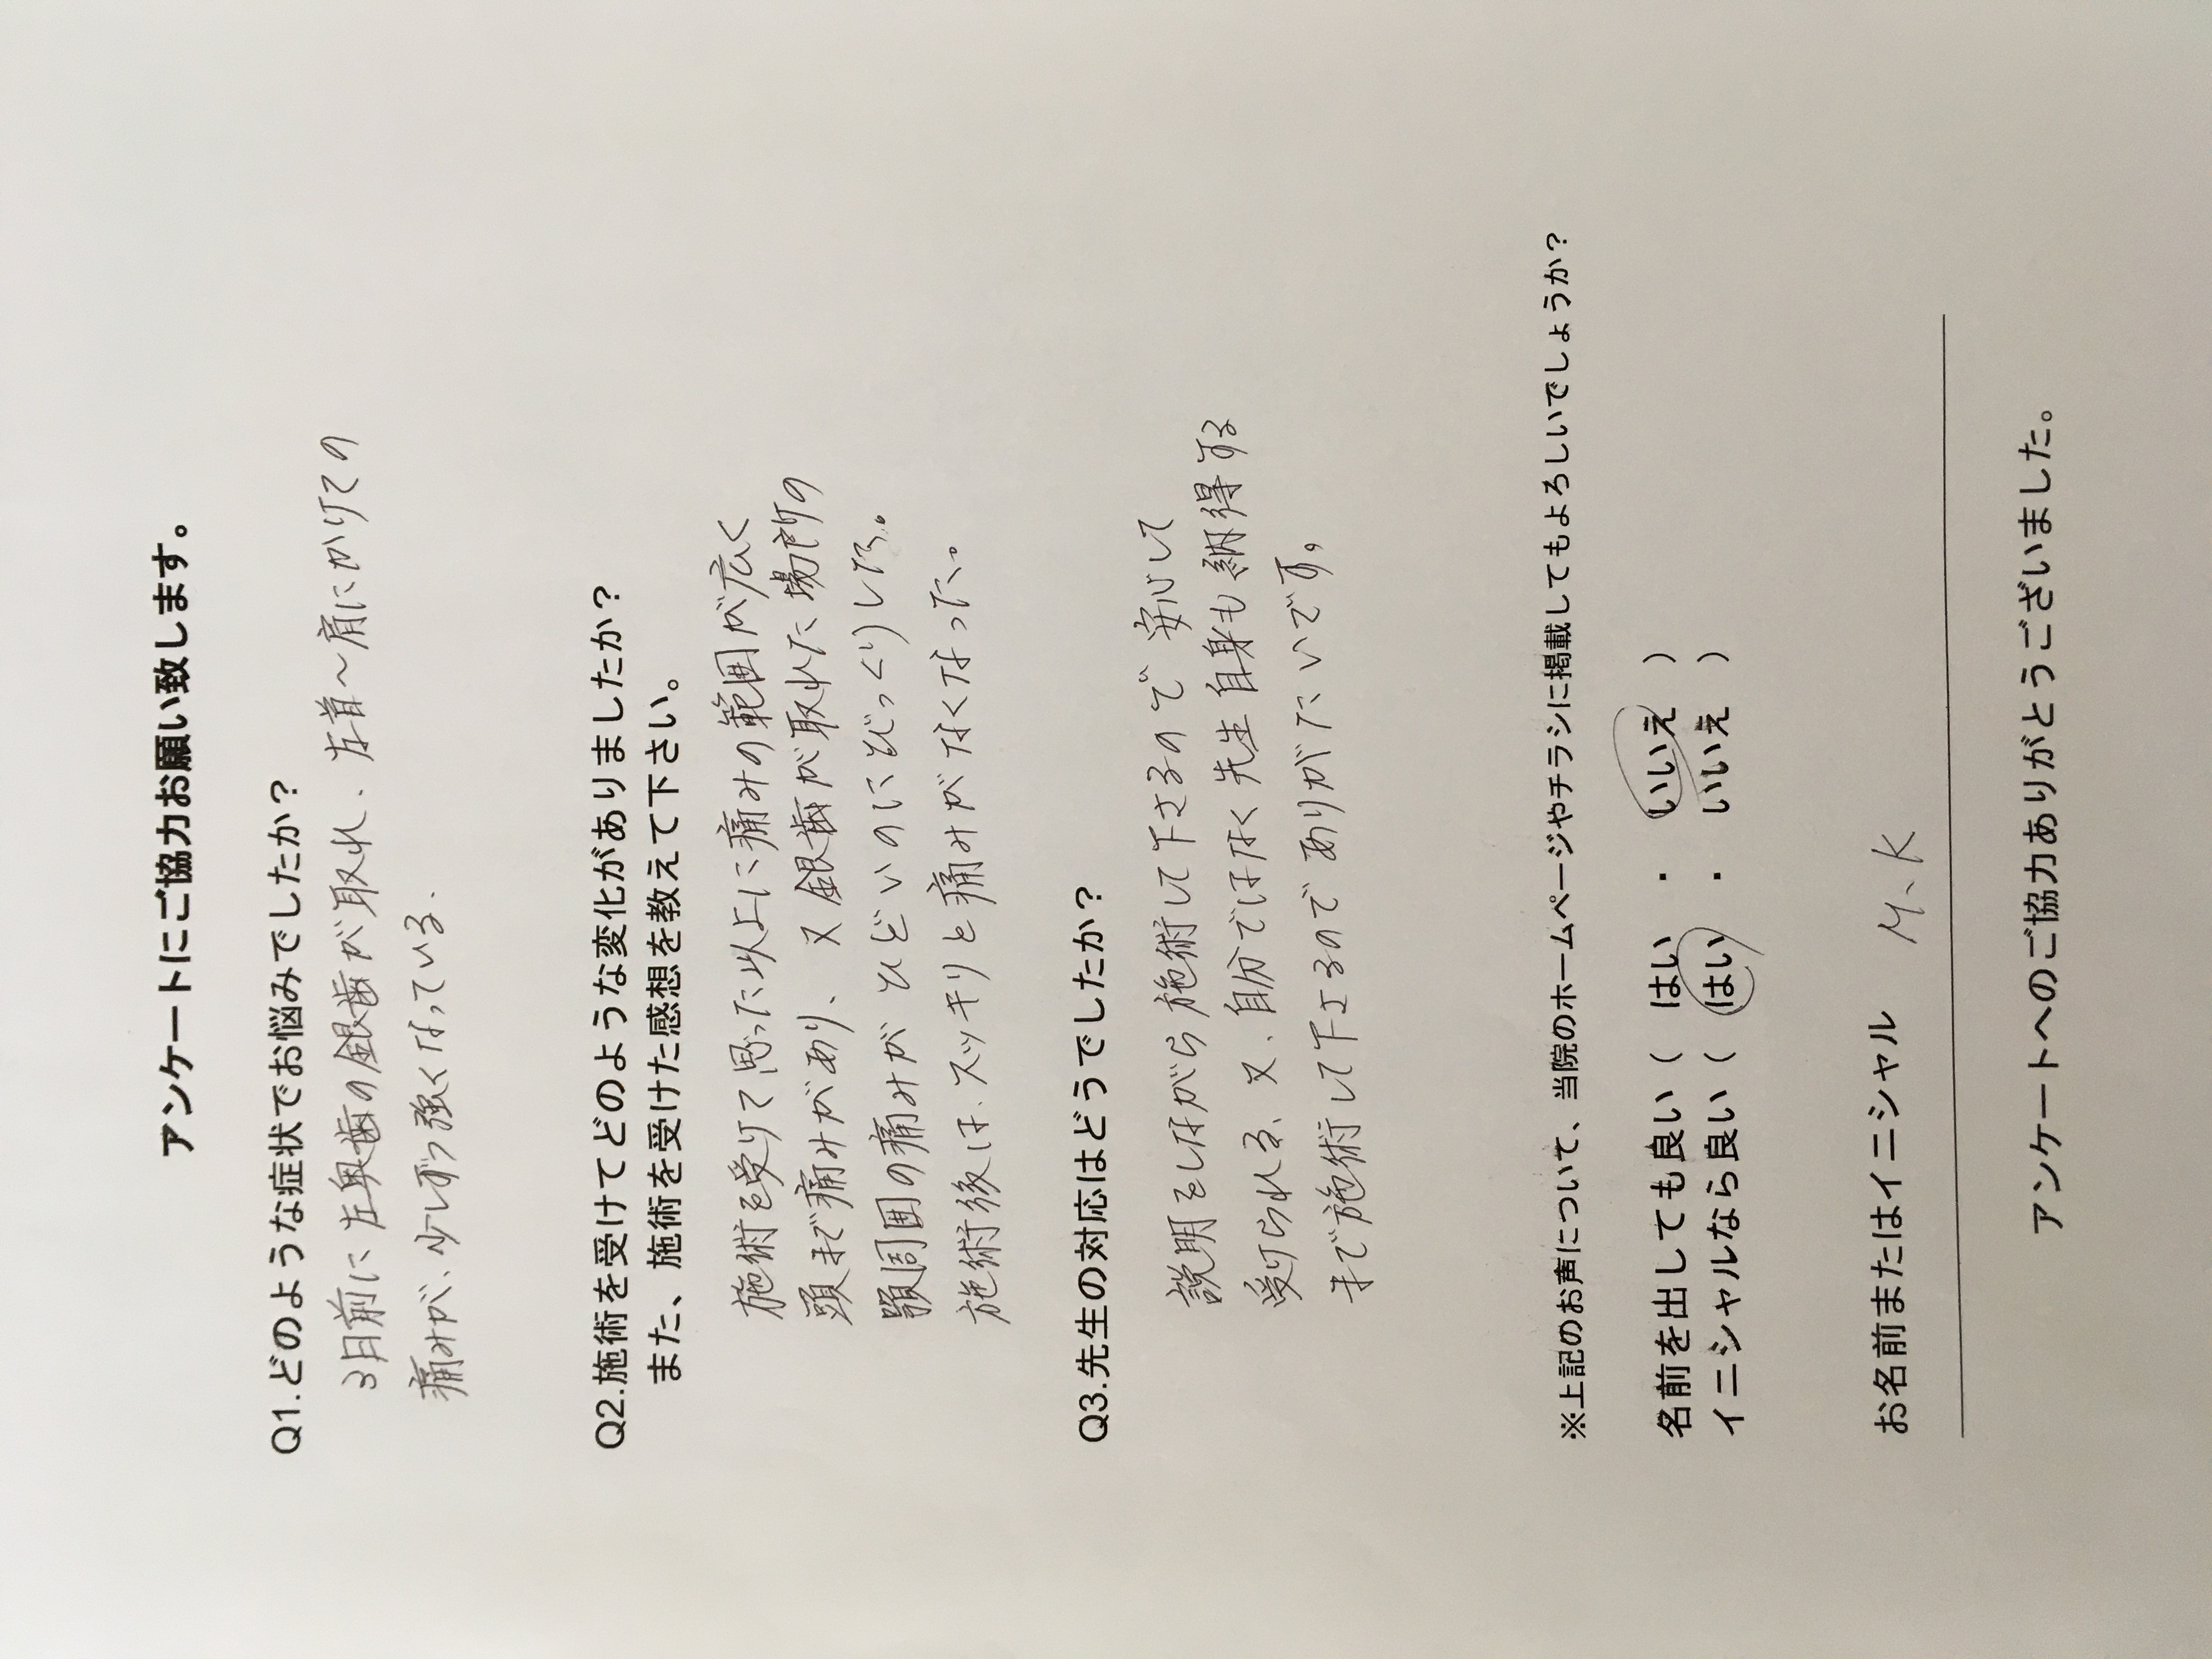 アンケートにご協力お願い致します。
Q1.どのような症状でお悩みでしたか？
3日前に左奥歯の銀歯が取れ、左首～肩にかけての
痛みが、少しずつ強くなっている。
Q2.施術を受けてどのような変化がありましたか？
また、施術を受けた感想を教えて下さい。
施術を受けて思った以上に痛みの範囲が広く
頭まで痛みがあり、又銀歯が取れた場所の
顎周囲の痛みがひどいのにびっくりした。
施術後は、スッキリと痛みがなくなった。
Q3.先生の対応はどうでしたか？
説明をしながら施術して下さるので安心して
受けられる、又、自分ではなく先生自身も納得する
まで施術して下さるのでありがたいです。
※上記のお声について、当院のホームページやチラシに掲載してもよろしいでしょうか？
名前を出しても良い（ はい ・ いいえ ）
イニシャルなら良い（ はい ・ いいえ ）
お名前またはイニシャル M、K
アンケートへのご協力ありがとうございました。